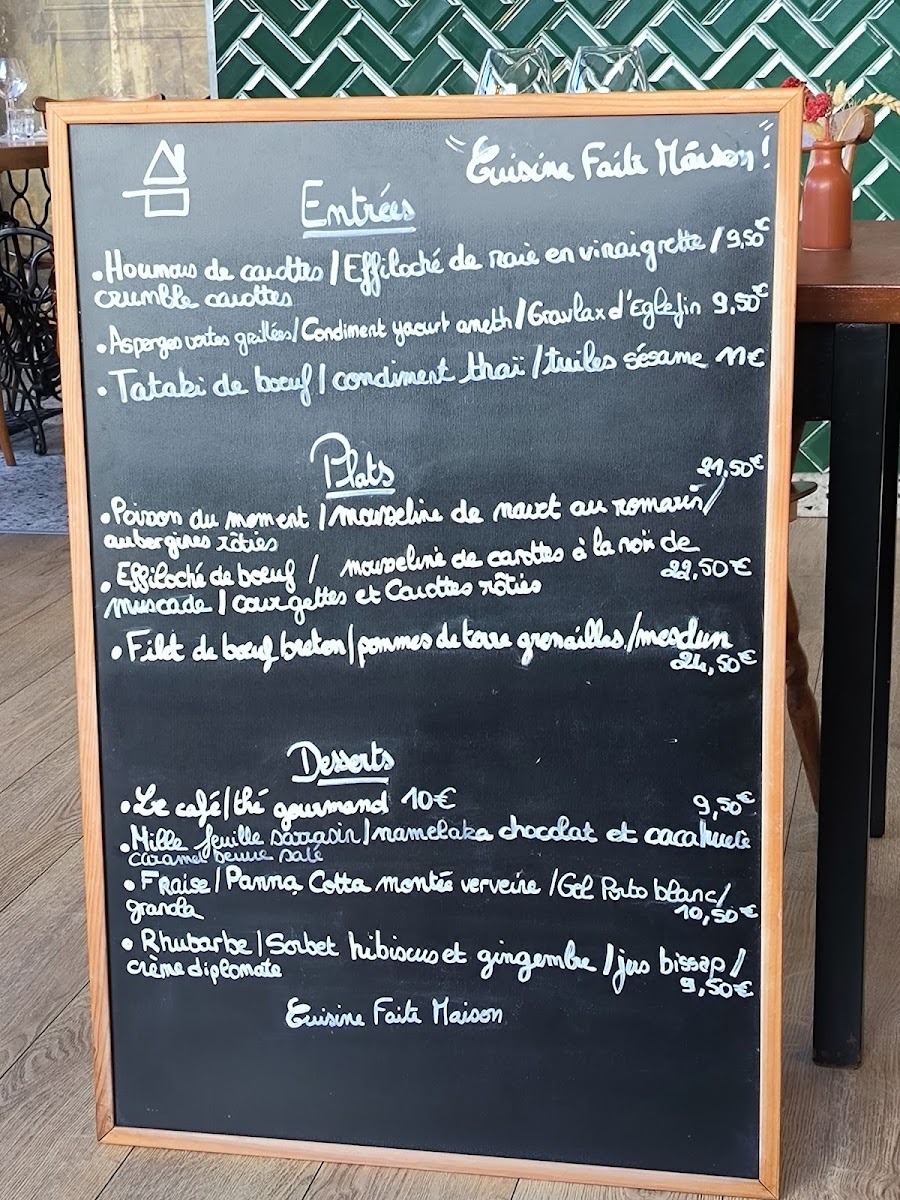 "Cuisine Faite Maison!"
Entrées
• Houmous de carottes / Effiloché de raie en vinaigrette / 9,50€
crumble carottes
• Asperges vertes grillées / Condiment yaourt aneth / Gravlax d'Eglefin 9,50€
• Tataki de boeuf / condiment thaï / tuiles sésame 11€
Plats
21,50€
• Poisson du moment / mousseline de navet au romarin /
aubergines rôties
• Effiloché de boeuf / mousseline de carottes à la noix de
22,50€
muscade / courgettes et Carottes rôties
• Filet de boeuf breton / pommes de terre grenailles / mesclun
24,50€
Desserts
• Le café/thé gourmand 10€
9,50€
• Mille feuille sarrasin / namelaka chocolat et cacahuete
caramel beurre salé
• Fraise / Panna Cotta montée verveine / Gel Porto blanc /
granola 10,50€
• Rhubarbe / Sorbet hibiscus et gingembre / jus bissap /
crème diplomate 9,50€
Cuisine Faite Maison